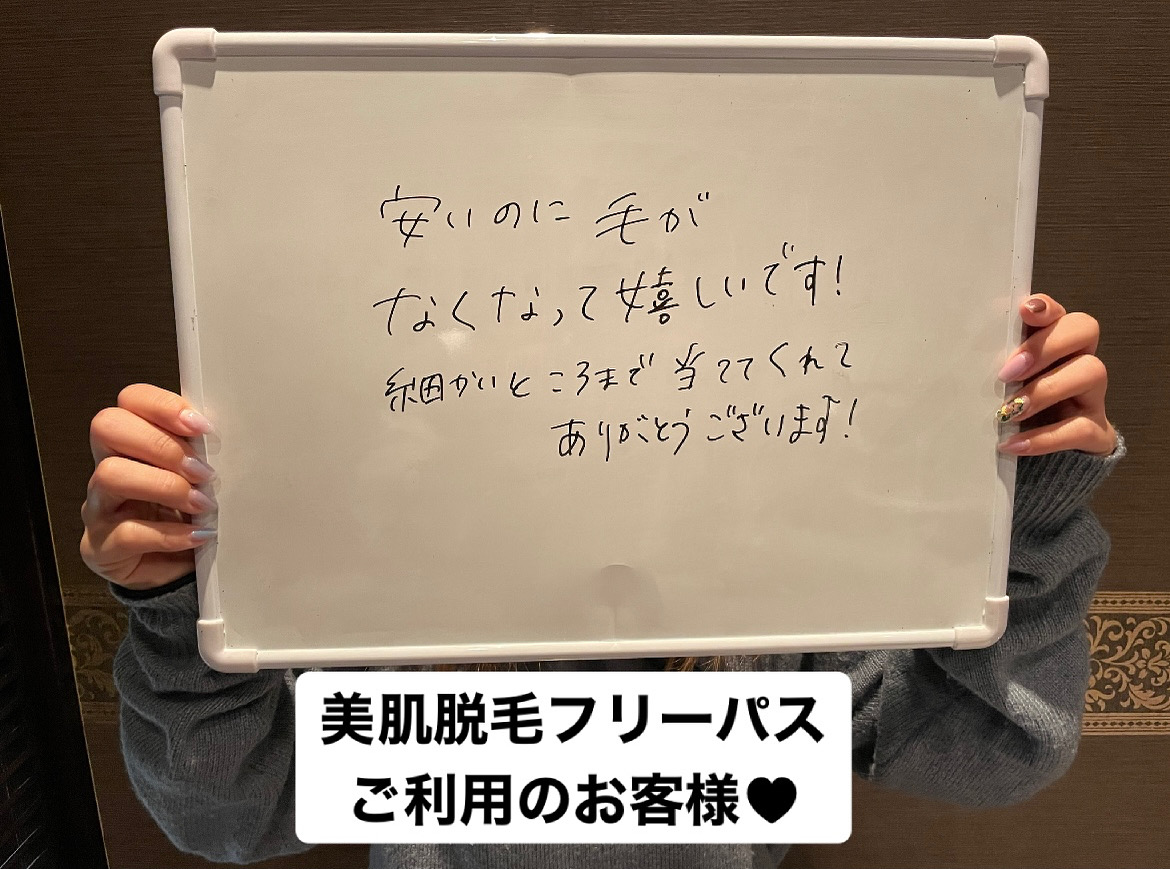 安いのに 毛が
なくなって嬉しいです!
細かいところまで当ててくれて
ありがとうございます!
美肌脱毛フリーパス
ご利用のお客様♥